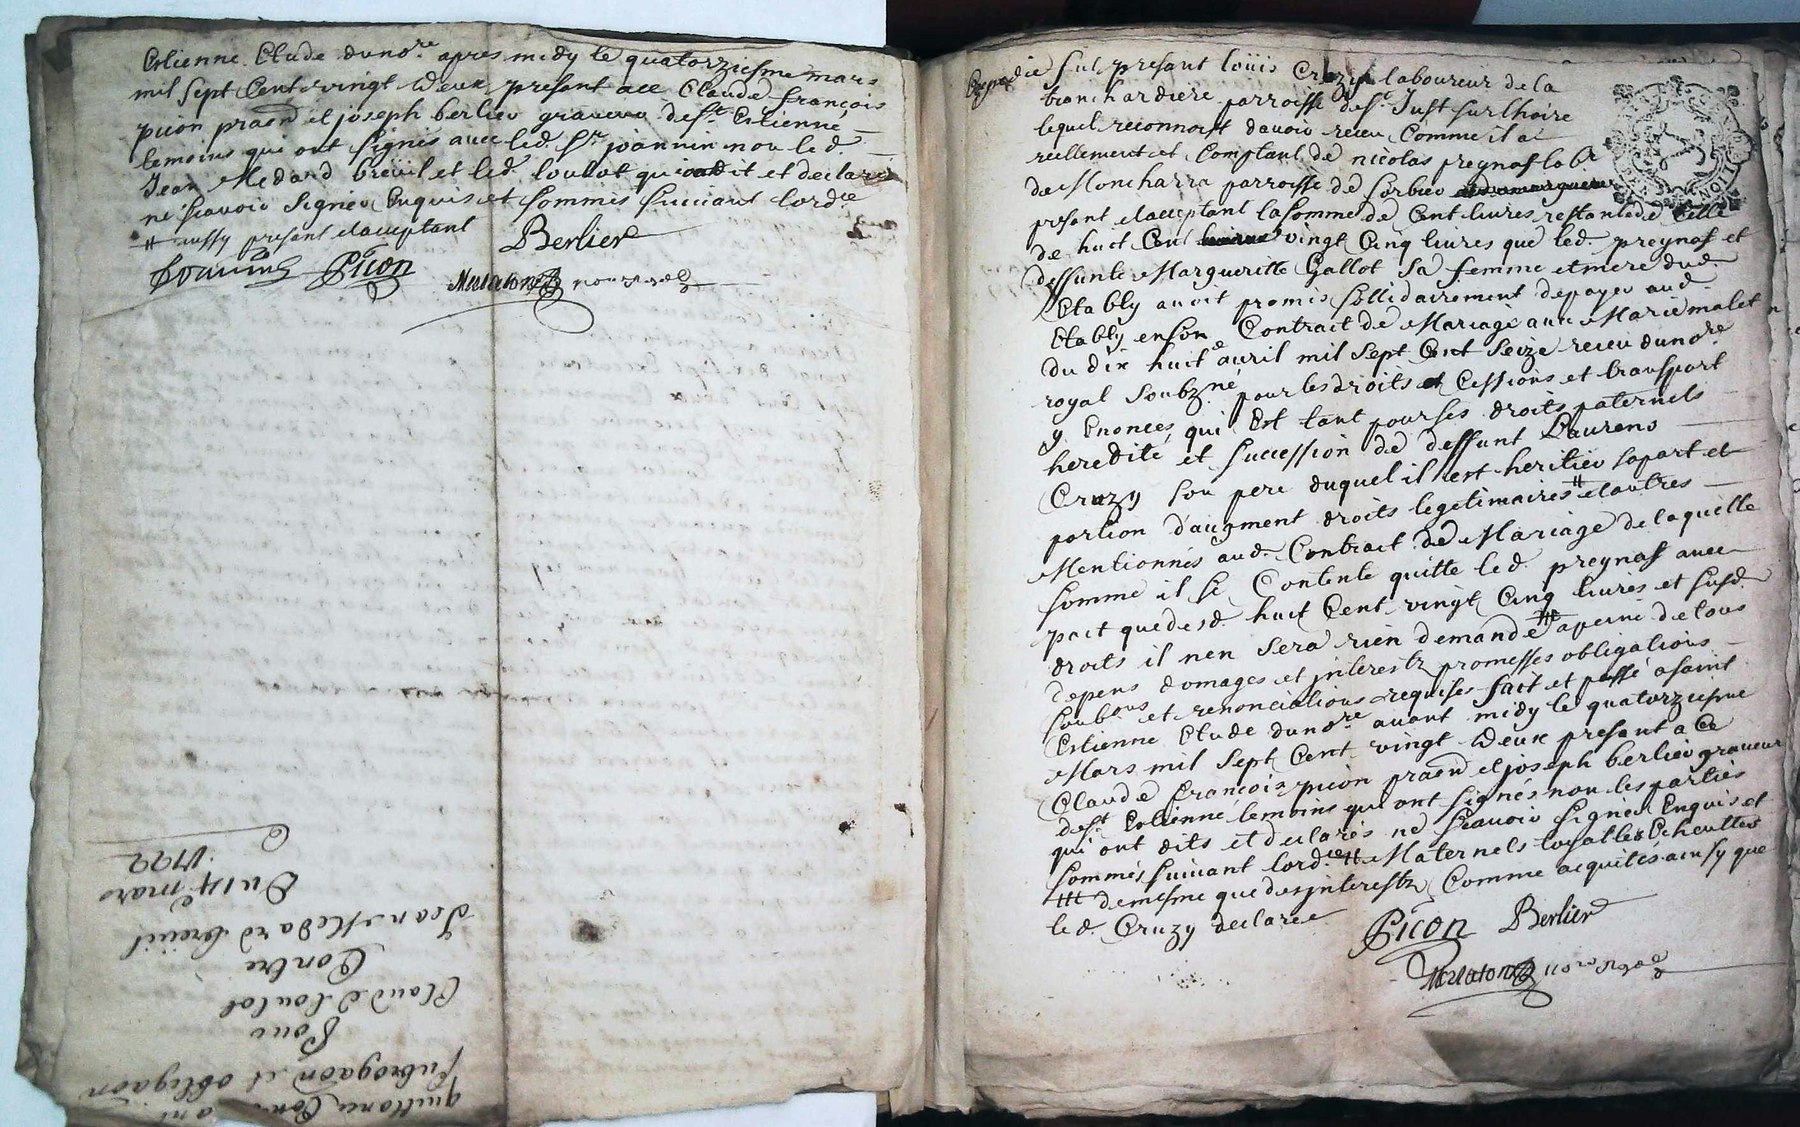 Estienne Etude dunore apres midy le quatorziesme mars
mil sept Cent vingt Deux present ace Claude françois
picon praen et joseph berlier graveur de st. Estienne
temoins qui ont signés avec led. Sr. joannin non led.
Jean Medard breüil et led. loulat qui ont dit et declaré
ne scavoir signer Enquis et sommés suivant lordce
# aussy present et acceptant
Berlier
Joannin Picon
nore royal
quittance
subrogaon et obligaon
Pour
Claude loulat
Contre
Jean Medard breüil
Du 14e mars
1722
Expedié
fut present loüis Cruzy laboureur de la
tranchardiere parroisse de st. Just sur lhoire
lequel reconnoist davoir receu Comme il a
reellement et Comptant de nicolas preynas labr
de Moncharra parroisse de Sorbier
present et acceptant la somme de Cent livres restante de Celle
de huit Cent vingt Cinq livres que led. preynas et
deffunte Margueritte Gallot sa femme et mere dud.
Etably avoit promis sollidairement de payer aud.
Etably en son Contrat de Mariage avec Marie malet
du dix huite avril mil sept Cent seize receu dunore
royal soubzné pour les droits et Cessions et transport
y Enoncés qui Est tant pour ses droits paternels
heredité et succession de deffunt Laurens
Cruzy son pere duquel il est heritier sa part et
portion daugment droits legitimaires # et autres
Mentionnés aud. Contract de Mariage de laquelle
somme il se Contente quitte led. preynas avec
pact que desd. huit Cent vingt Cinq livres et susd.
droits il nen sera rien demandé # a peine de tous
depens domages et jnterestz promesses obligations
soubons et renonciations requises fait et passé a saint
Estienne Etude dunore avant midy le quatorziesme
Mars mil sept Cent vingt Deux present a Ce
Claude françois picon praen et joseph berlier graveur
de st. Estienne temoins qui ont signés non les parties
qui ont dits et declarés ne scavoir signer Enquis et
sommés suivant lordce # Maternels Echeuttes
# de mesme que des jnterestz Comme acquités ainsy que
led. Cruzy declare
Picon Berlier
nore royal